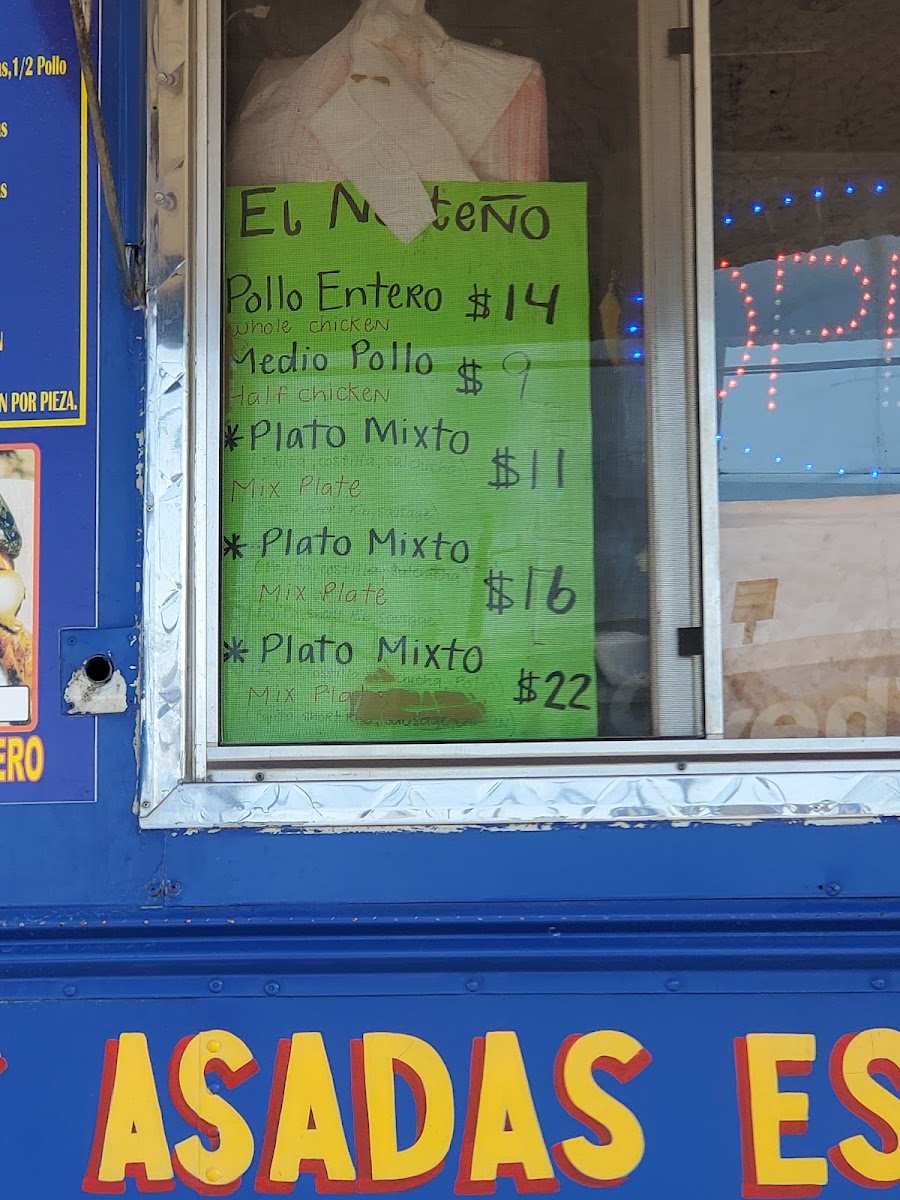 1/2 Pollo
N POR PIEZA.
ERO
El Norteño
Pollo Entero $14
Whole chicken
Medio Pollo $9
Half chicken
*Plato Mixto
Fajita, costilla, salchicha
$11
Mix Plate
*Plato Mixto
$16
Mix Plate
*Plato Mixto
$22
Mix Plate
ASADAS ES